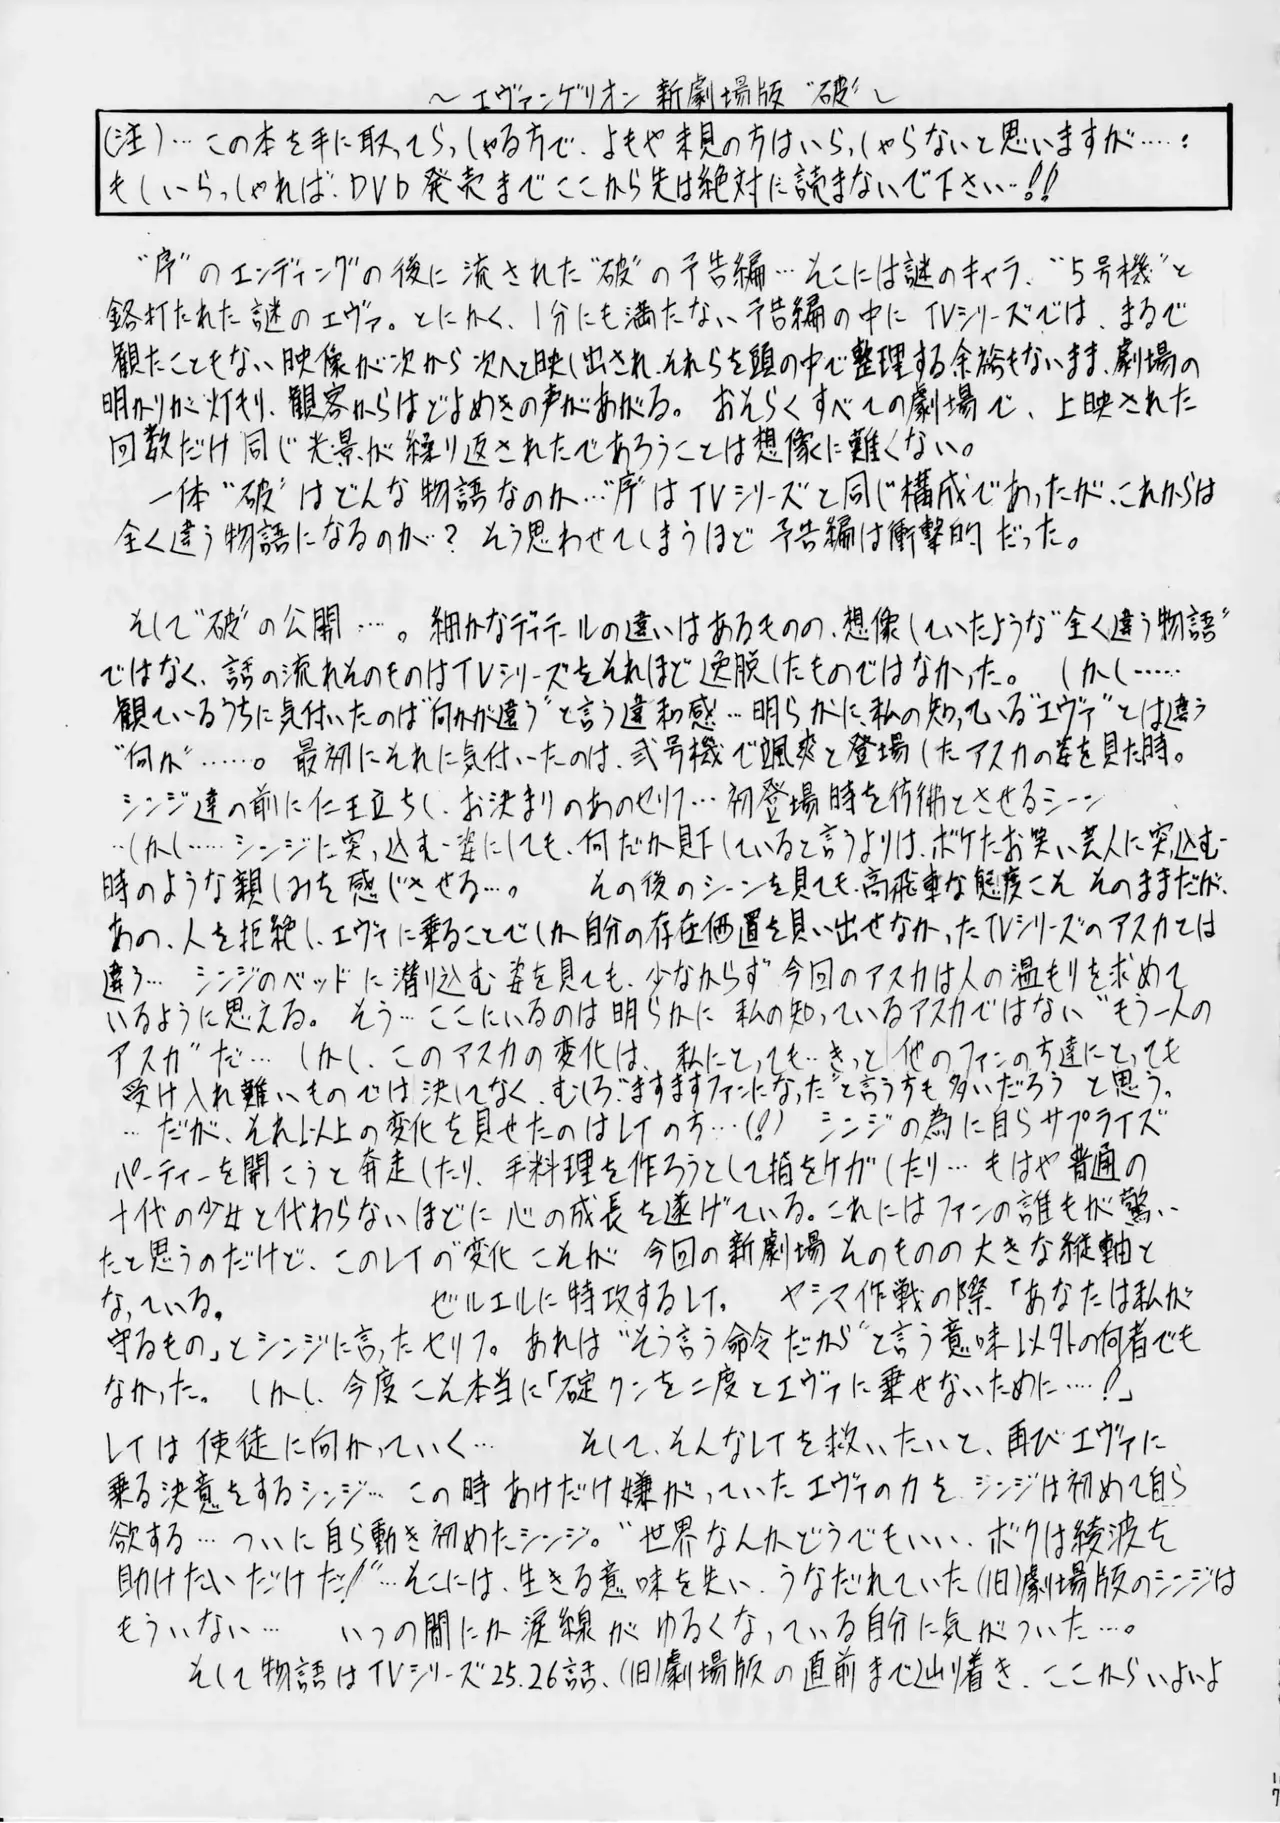 ～エヴァンゲリオン 新劇場版 〝破〟～
(注)…この本を手に取ってらっしゃる方で、よもや未見の方はいらっしゃらないと思いますが……:
もしいらっしゃれば、DVD発売までここから先は絶対に読まないで下さい…!!
〝序〟のエンディングの後に流された〝破〟の予告編…そこには謎のキャラ、〝5号機〟と
銘打たれた謎のエヴァ。とにかく、1分にも満たない予告編の中にTVシリーズでは、まるで
観たこともない映像が次から次へと映し出され、それらを頭の中で整理する余裕もないまま、劇場の
明かりが灯もり、観客からはどよめきの声があがる。おそらくすべての劇場で、上映された
回数だけ同じ光景が繰り返されたであろうことは想像に難くない。
一体〝破〟はどんな物語なのか…〝序〟はTVシリーズと同じ構成であったが、これからは
全く違う物語になるのか…? そう思わせてしまうほど予告編は衝撃的だった。
そして〝破〟の公開…。細かなディテールの違いはあるものの、想像していたような〝全く違う物語〟
ではなく、話の流れそのものはTVシリーズをそれほど逸脱したものではなかった。 しかし……
観ているうちに気付いたのは〝何かが違う〟と言う違和感…明らかに、私の知っている〝エヴァ〟とは違う
〝何か〟……。最初にそれに気付いたのは、弐号機で颯爽と登場したアスカの姿を見た時。
シンジ達の前に仁王立ちし、お決まりのあのセリフ…初登場時を彷彿とさせるシーン
…しかし……シンジに突っ込む姿にしても、何だか見下していると言うよりは、ボケたお笑い芸人に突っ込む
時のような親しみを感じさせる…。 その後のシーンを見ても、高飛車な態度こそそのままだが、
あの、人を拒絶し、エヴァに乗ることでしか自分の存在価置を見い出せなかったTVシリーズのアスカとは
違う… シンジのベッドに潜り込む姿を見ても、少なからず今回のアスカは人の温もりを求めて
いるように思える。そう…ここにいるのは明らかに私の知っているアスカではない〝もう一人の
アスカ〟だ… しかし、このアスカの変化は、私にとっても…きっと他のファンの方達にとっても
受け入れ難いものでは決してなく、むしろ〝ますますファンになった〟と言う方も多いだろうと思う。
…だが、それ以上の変化を見せたのはレイの方…(!) シンジの為に自らサプライズ
パーティーを開こうと奔走したり、手料理を作ろうとして指をケガしたり…もはや普通の
十代の少女と代わらないほどに心の成長を遂げている。これにはファンの誰もが驚い
たと思うのだけど、このレイの〝変化〟こそが今回の新劇場そのものの大きな縦軸と
なっている。 ゼルエルに特攻するレイ。 ヤシマ作戦の際「あなたは私が
守るもの」とシンジに言ったセリフ。あれは〝そう言う命令だから〟と言う意味以外の何者でも
なかった。 しかし、今度こそ本当に「碇クンを二度とエヴァに乗せないために……!」
レイは使徒に向かっていく… そして、そんなレイを救いたいと、再びエヴァに
乗る決意をするシンジ…この時あれだけ嫌がっていたエヴァの力を、シンジは初めて自ら
欲する…ついに自ら動き初めたシンジ。〝世界なんかどうでもいい、ボクは綾波を
助けたいだけだ!〟…そこには、生きる意味を失い、うなだれていた(旧)劇場版のシンジは
もういない… いつの間にか涙線がゆるくなっている自分に気がついた…。
そして物語はTVシリーズ25.26話、(旧)劇場版の直前まで辿り着き、ここからいよいよ
17